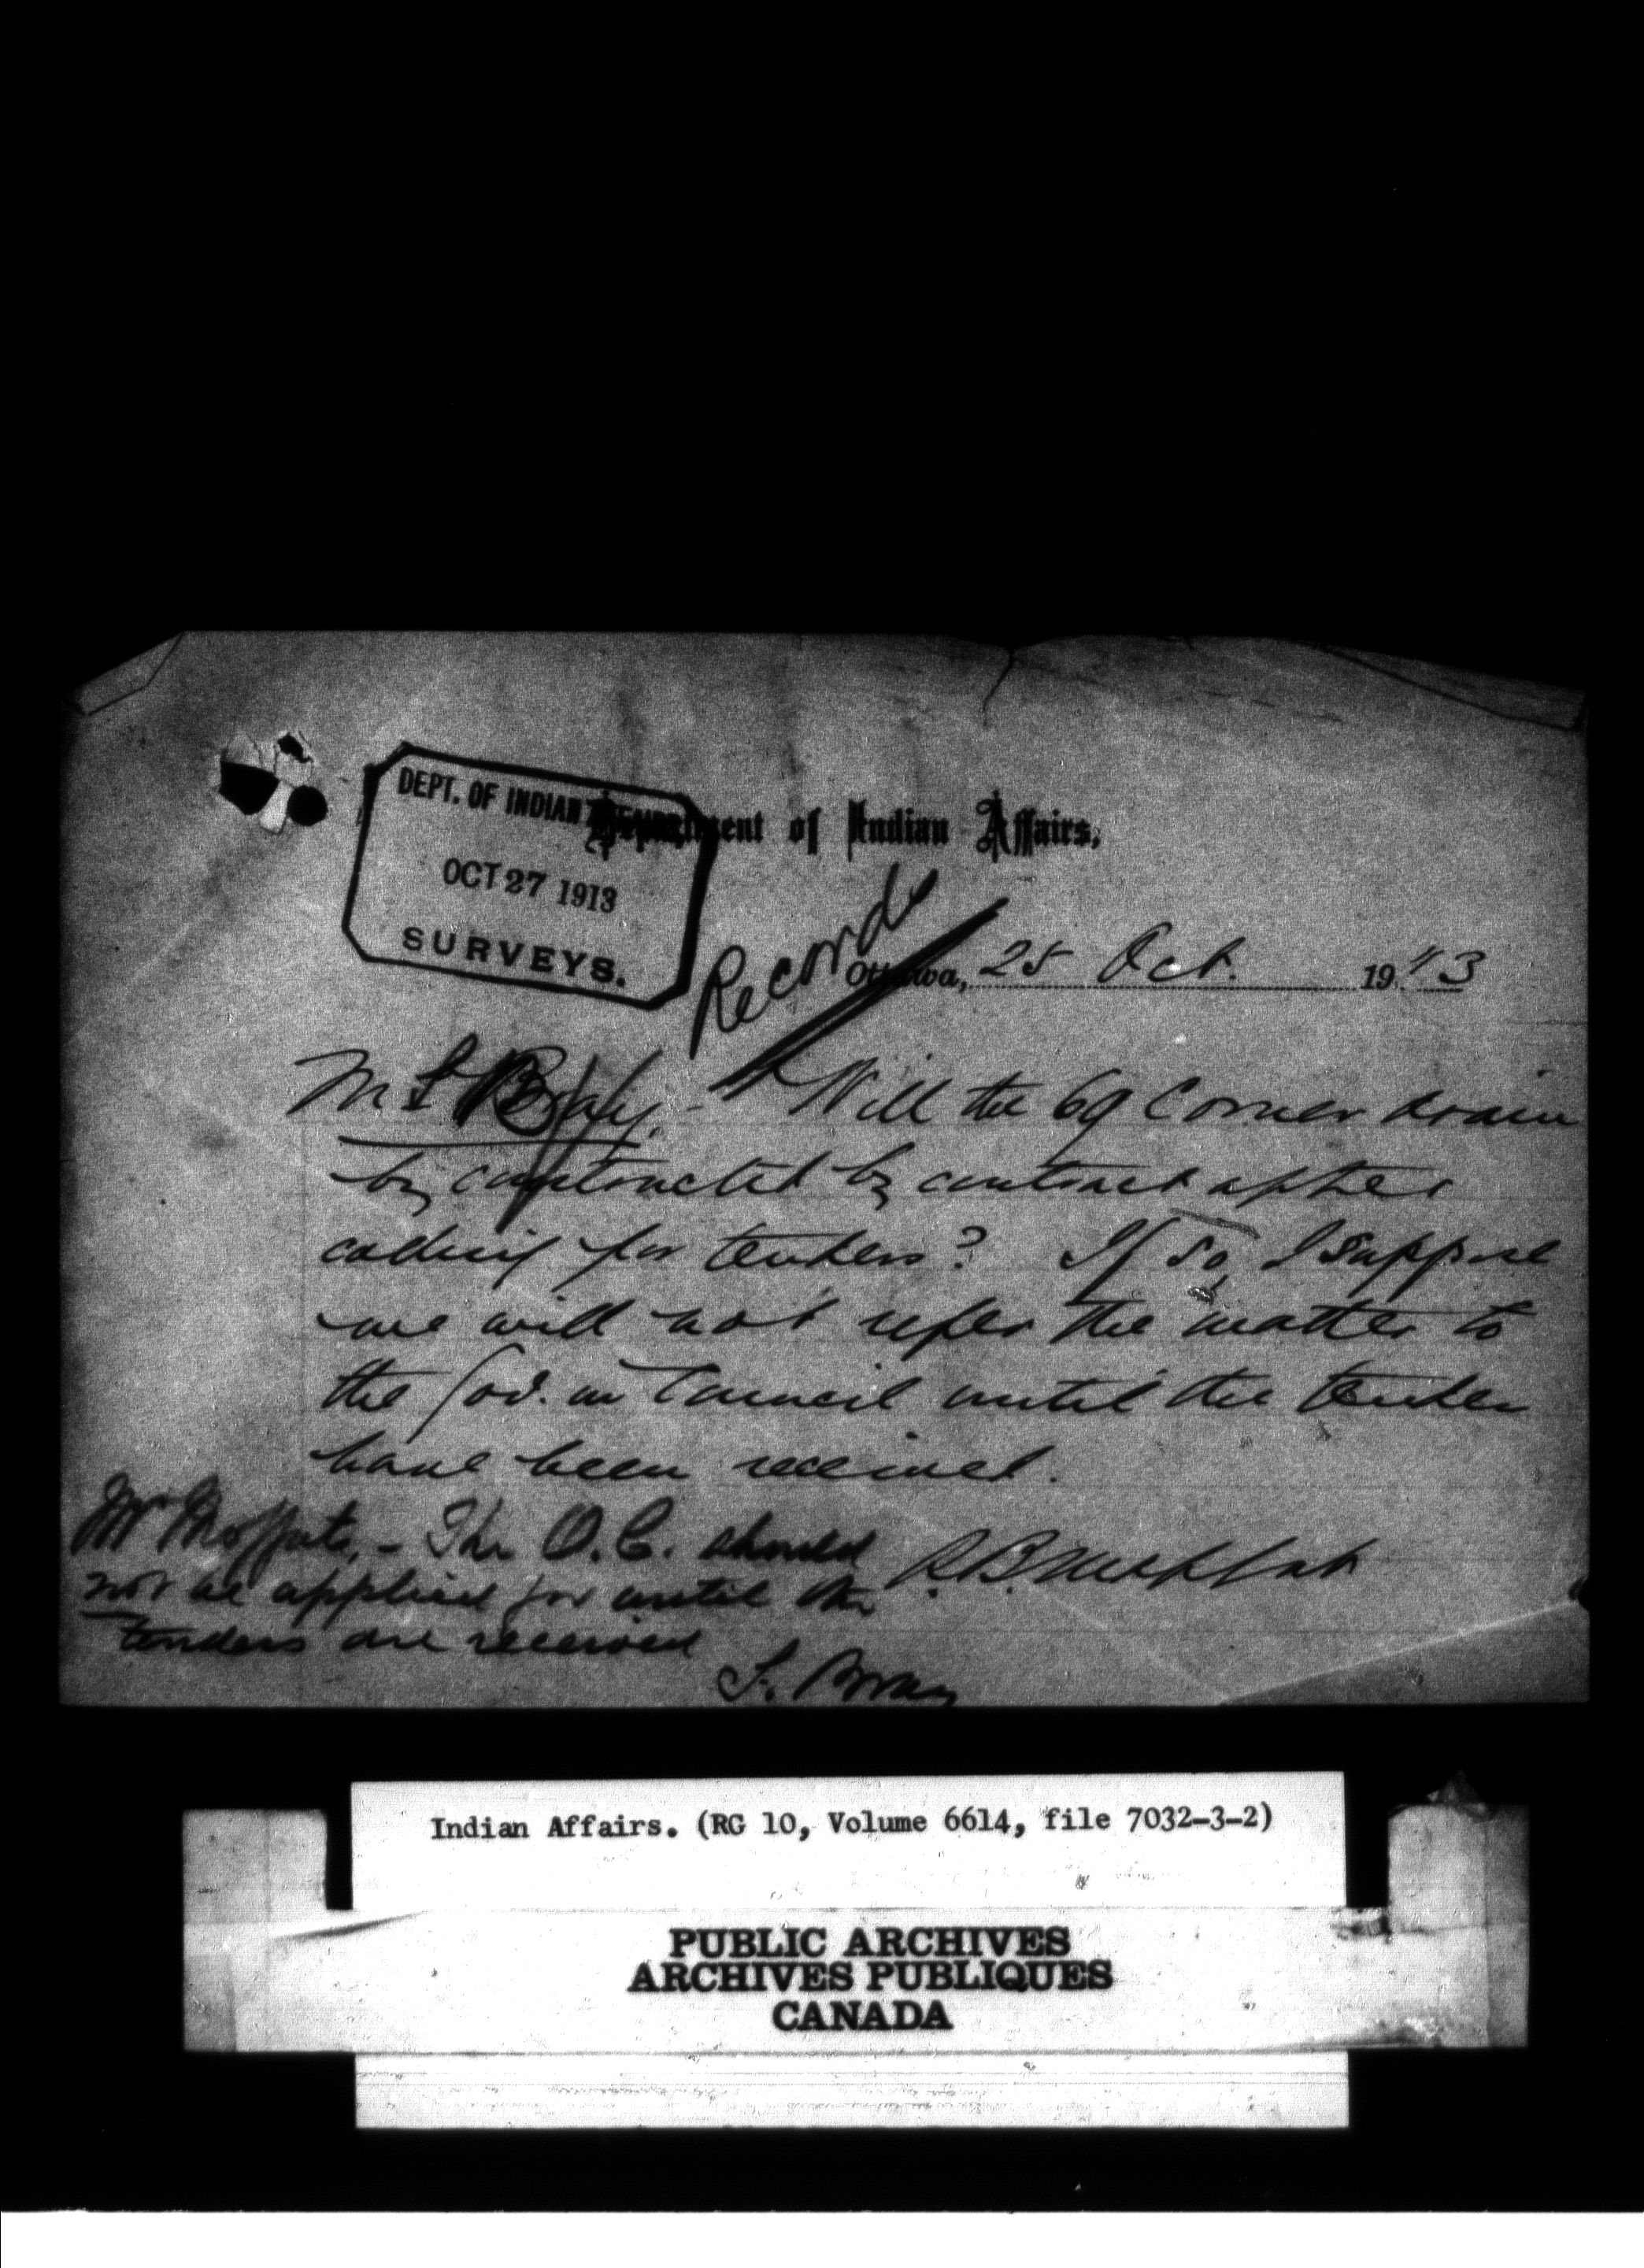 DEPT. OF INDIAN AFFAIRS
OCT 27 1913
SURVEYS.
Department of Indian Affairs,
Records
Ottawa, 25 Oct. 1913
Mr Bray, - Will the 69 Corner drain
by constructed by contract after
calling for tenders? If so, I suppose
we will not refer the matter to
the Gov. in Council until the tenders
have been received.
Mr Moffats, - The O.C. should
not be applied for until the
tenders are received
S. Bray
Indian Affairs. (RG 10, Volume 6614, file 7032-3-2)
PUBLIC ARCHIVES
ARCHIVES PUBLIQUES
CANADA